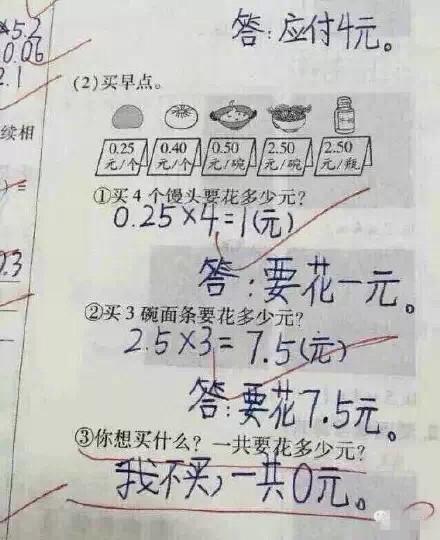 ×5.2
0.06
2.1
答:应付4元。
(2)买早点。
续相
0.25 元/个
0.40 元/个
0.50 元/碗
2.50 元/碗
2.50 元/瓶
①买4个馒头要花多少元?
0.25×4=1(元)
0.3
答:要花一元。
②买3碗面条要花多少元?
2.5×3=7.5(元)
答:要花7.5元。
③你想买什么?一共要花多少元?
我不买,一共0元。